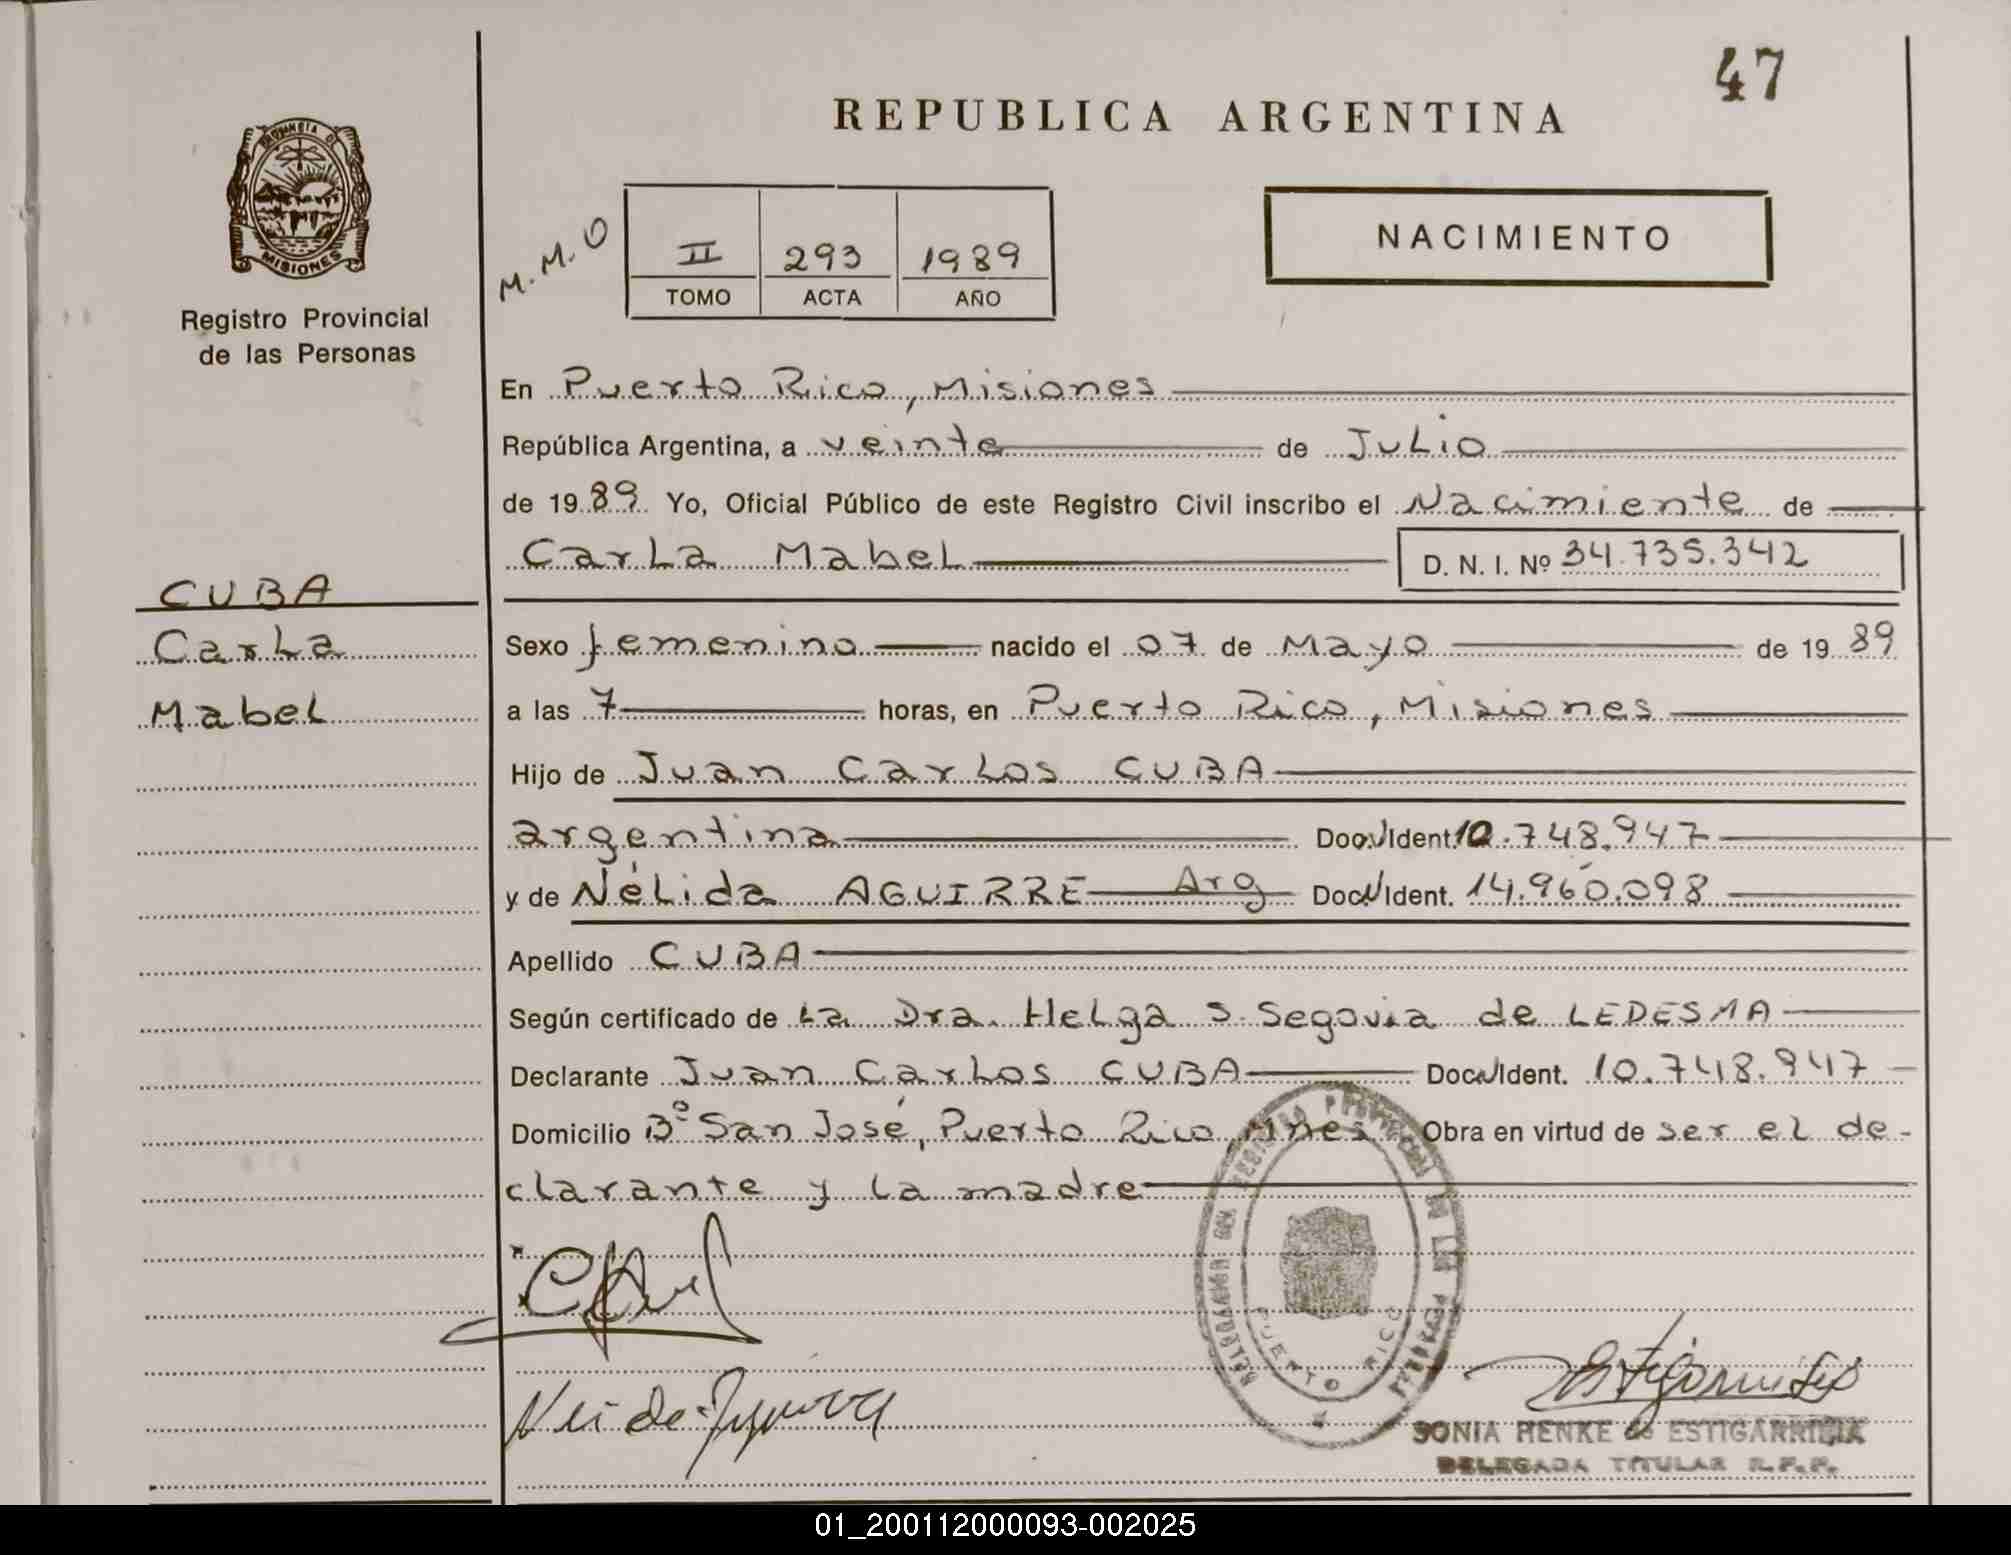 47
REPUBLICA ARGENTINA
PROVINCIA DE
MISIONES
Registro Provincial
de las Personas
M.M.O
II 293 1989
TOMO ACTA AÑO
NACIMIENTO
En Puerto Rico, Misiones
República Argentina, a veinte de Julio
de 1989 Yo, Oficial Público de este Registro Civil inscribo el Nacimiente de
Carla Mabel D. N. I. Nº 34.735.342
CUBA
Carla
Mabel
Sexo femenino nacido el 07 de Mayo de 1989
a las 7 horas, en Puerto Rico, Misiones
Hijo de Juan Carlos CUBA
argentina Doc. Ident. 10.748.947
y de Nélida AGUIRRE Arg Doc. Ident. 14.960.098
Apellido CUBA
Según certificado de La Dra. Helga S. Segovia de LEDESMA
Declarante Juan Carlos CUBA Doc. Ident. 10.748.947
Domicilio Bº San José, Puerto Rico, Mnes Obra en virtud de ser el de-
clarante y la madre
PUERTO RICO
SONIA HENKE de ESTIGARRIBIA
DELEGADA TITULAR R.P.P.
01_200112000093-002025